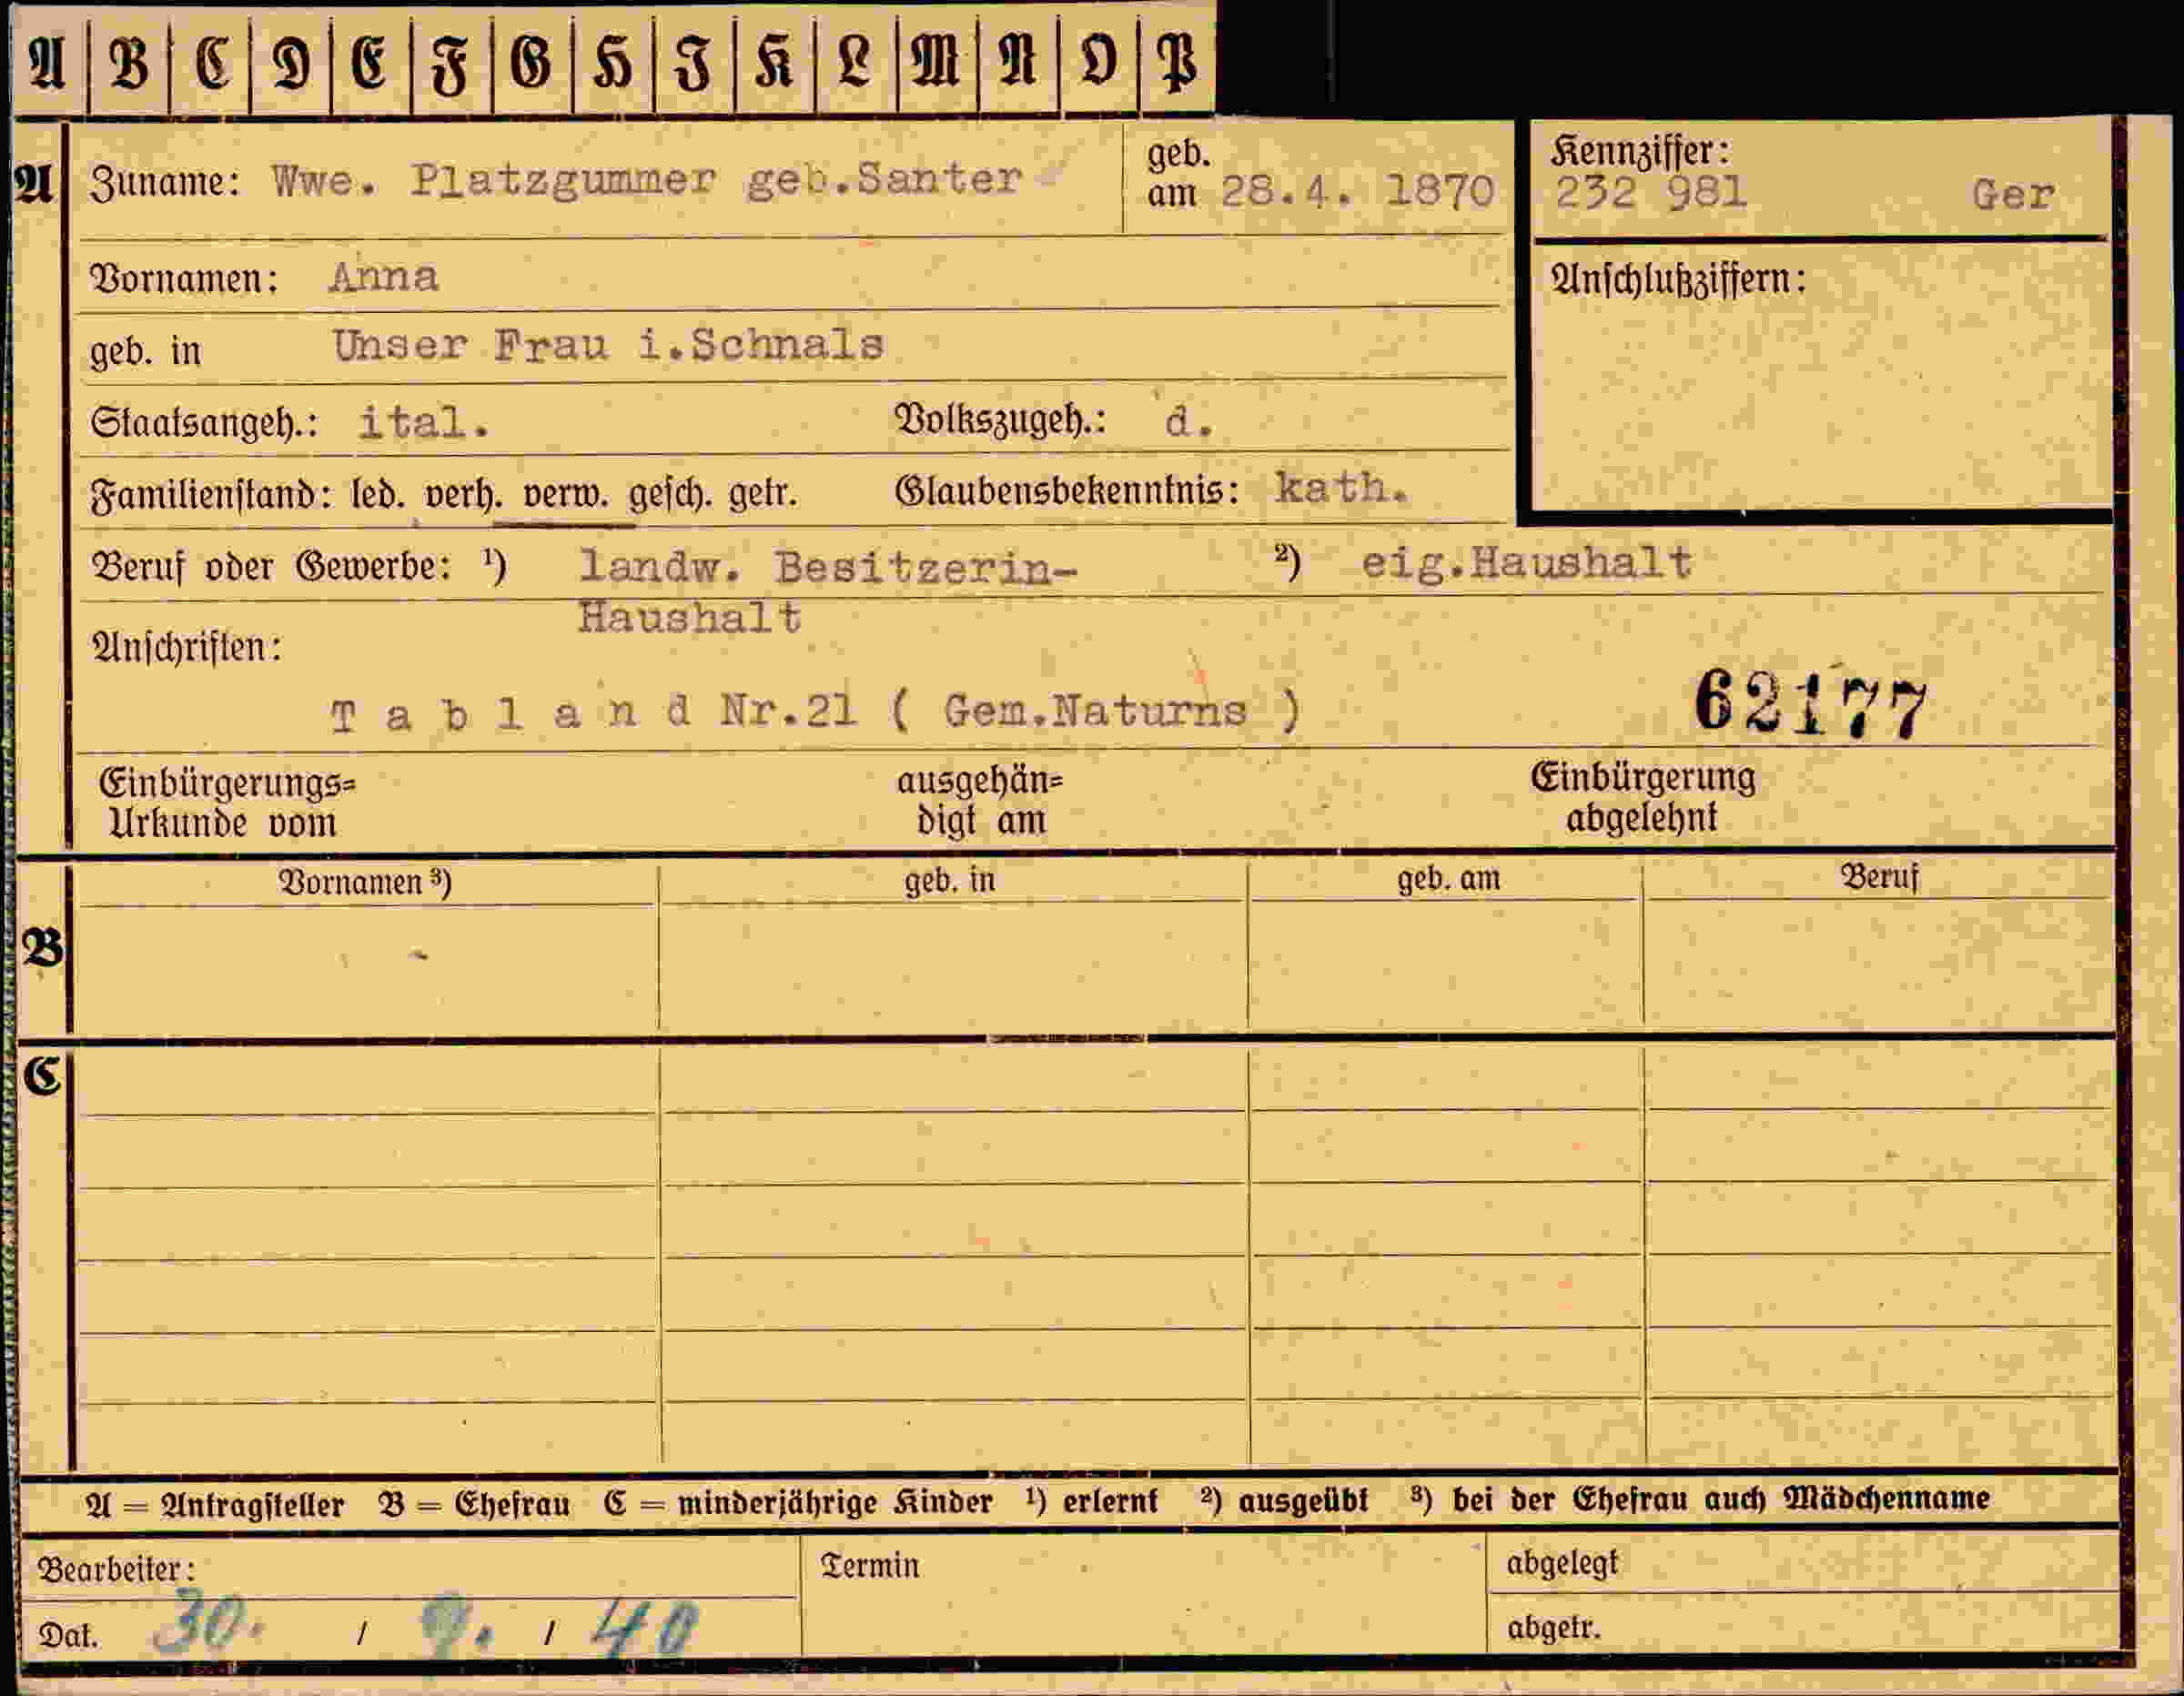 A B C D E F G H I K L M N O P
A Zuname: Wwe. Platzgummer geb.Santer geb. am 28.4. 1870
Kennziffer: 232 981 Ger
Vornamen: Anna
Anschlußziffern:
geb. in Unser Frau i.Schnals
Staatsangeh.: ital. Volkszugeh.: d.
Familienstand: led. verh. verw. gesch. getr. Glaubensbekenntnis: kath.
Beruf oder Gewerbe: ¹) landw. Besitzerin- ²) eig.Haushalt
Haushalt
Anschriften:
T a b l a n d Nr.21 ( Gem.Naturns ) 62177
Einbürgerungs= ausgehän= Einbürgerung
Urkunde vom digt am abgelehnt
Vornamen ³) geb. in geb. am Beruf
B
C
A = Antragsteller B = Ehefrau C = minderjährige Kinder ¹) erlernt ²) ausgeübt ³) bei der Ehefrau auch Mädchenname
Bearbeiter: Termin abgelegt
Dat. 30. / 9. / 40 abgetr.